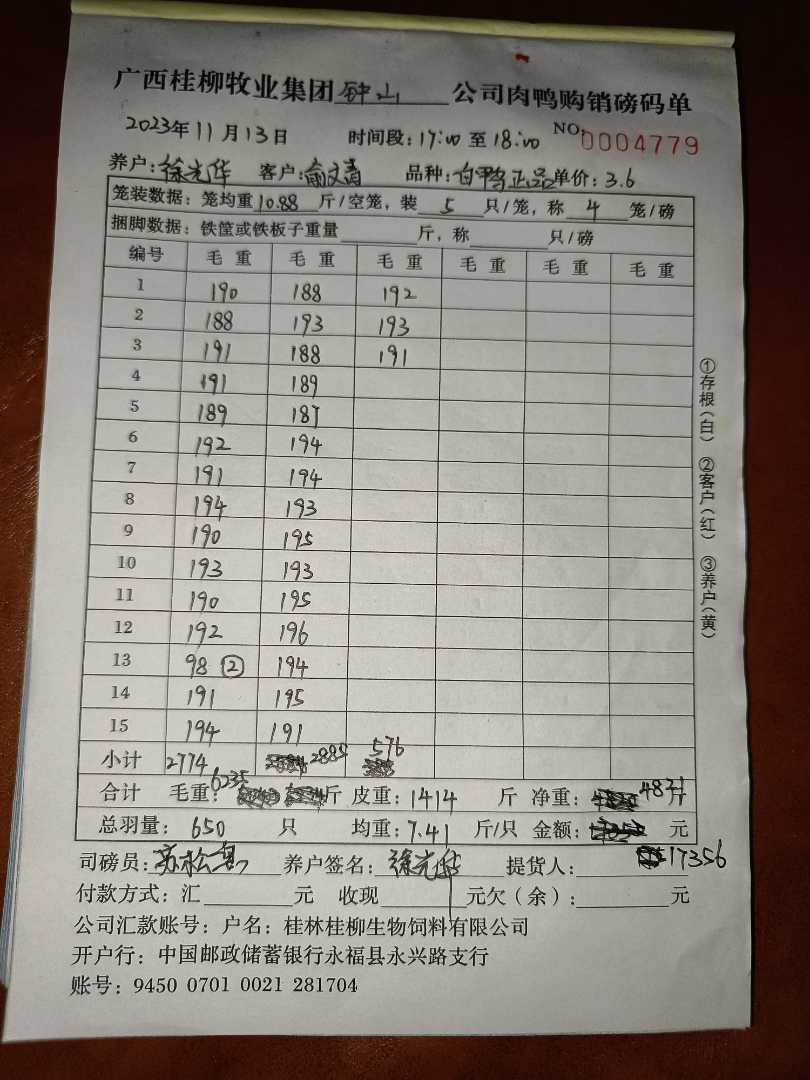 广西桂柳牧业集团钟山公司肉鸭购销磅码单
2023年11月13日 时间段：17:00至18:00 NO.0004779
养户：徐光华 客户：俞文清 品种：白鸭正品 单价：3.6
笼装数据：笼均重10.88斤/空笼，装5只/笼，称4笼/磅
捆脚数据：铁筐或铁板子重量 斤，称 只/磅
编号 毛重 毛重 毛重 毛重 毛重 毛重
1 190 188 192
2 188 193 193
3 191 188 191
4 191 189
5 189 187
6 192 194
7 191 194
8 194 193
9 190 195
10 193 193
11 190 195
12 192 196
13 98 ② 194
14 191 195
15 194 191
小计 2774 2885 576
合计 毛重：6235斤 皮重：1414斤 净重：4821斤
总羽量：650只 均重：7.41斤/只 金额： 元
17356
司磅员：苏松 养户签名：徐光华 提货人：
付款方式：汇 元 收现 元欠（余）： 元
公司汇款账号：户名：桂林桂柳生物饲料有限公司
开户行：中国邮政储蓄银行永福县永兴路支行
账号：9450 0701 0021 281704
①存根（白） ②客户（红） ③养户（黄）